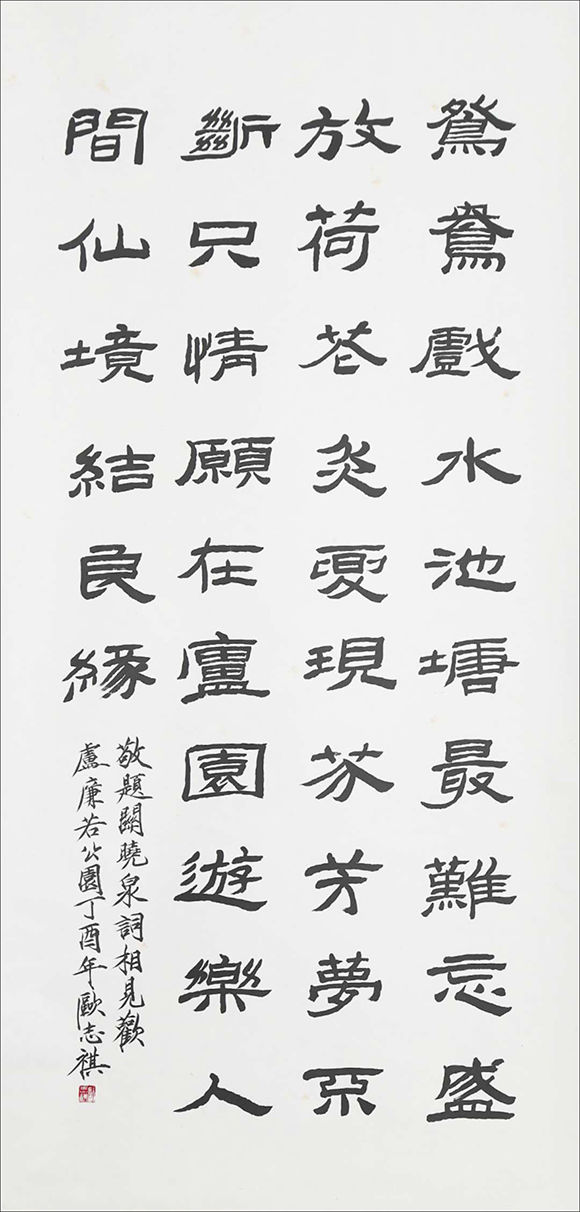 鴛鴦戲水池塘最難忘盛
放荷花炎夏現芬芳夢不
斷只情願在廬園遊樂人
間仙境結良緣
敬題關曉泉詞相見歡
盧廉若公園丁酉年歐志祺